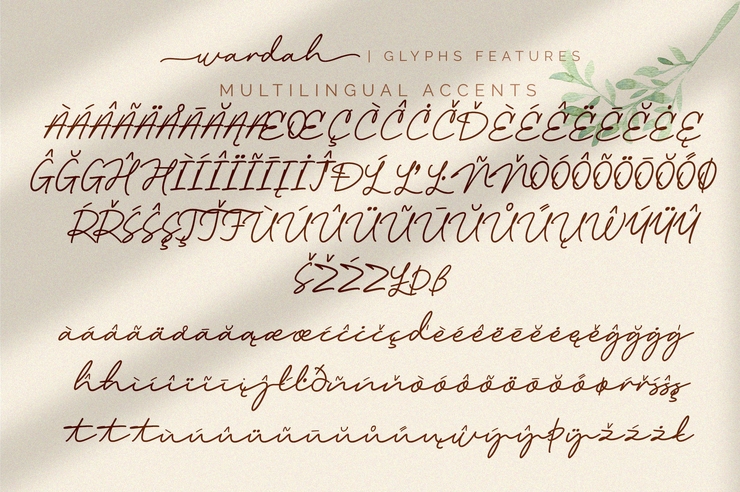 wardah | GLYPHS FEATURES
MULTILINGUAL ACCENTS
ÀÁÂÃÄÅĀĂĄÆŒÇĆĈĊČĎÈÉÊËĒĔĖĘ
ĜĞGĤĦÌÍÎÏĨĪĮİĴĐĹĽĿÑŇÒÓÔÕÖŌŎŐØ
ŔŘŚŜŞŢŤŦÙÚÛÜŨŪŬŮŰŲŴÝŸŶ
ŠŽŹZŁÞß
àáâãäåāăąæœćĉċčçďèéêëēĕėęěĝğġģ
ĥħìíîïĩīįĵłŀðñńňòóôõöōŏőøŕřśŝş
ŧùúûüũūŭůűųŵýŷþÿžźżł